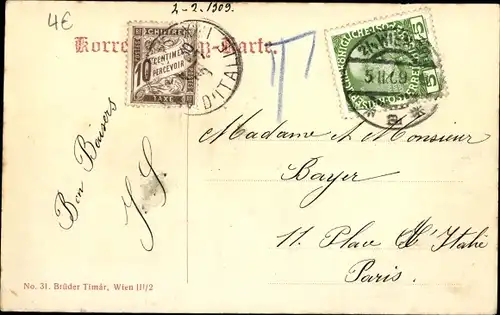 4€
2-2.1909.
Korrespondenz-Karte.
CHIFFRE
10 CENTIMES
A PERCEVOIR
TAXE
D'ITALIE
T
5
5
WIEN
5.II.09
Madame & Monsieur
Bayer
11. Place d'Italie
Paris.
Bon Baisers
No. 31. Brüder Timár, Wien III/2